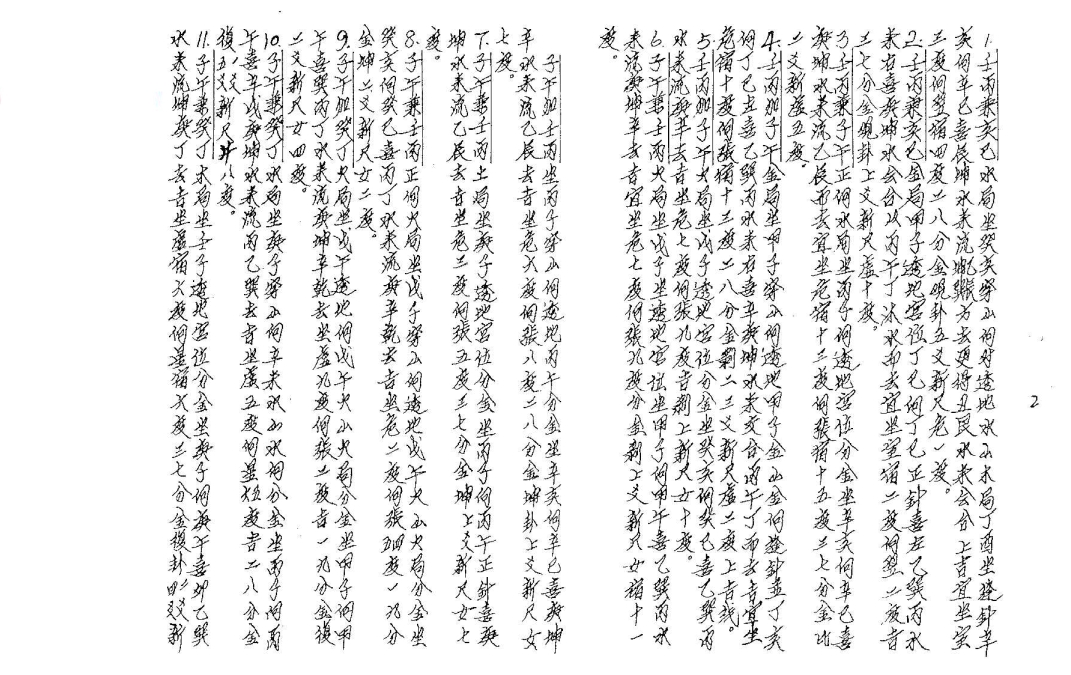 1.壬丙兼亥巳水局坐癸亥穿山向对透地水山木局丁酉坐縫針辛
亥向辛巳喜辰坤水来流方去更将丑艮水来会合上吉宜坐室
三度向翌宿四度二八分金观卦五爻新尺危一度。
2.壬丙兼亥巳金局甲子透地宫位丁巳向丁巳正針喜左乙巽丙水
来右喜庚坤水会合从丙午丁水而去宜坐室宿二度向翌二度吉
三七分金观卦上爻新尺虚十度。
3.壬丙兼子午正向水局坐丙子向透地宫位分金坐辛亥向辛巳喜
庚坤水来流乙辰而去宜坐危宿十三度向張宿十五度三七分金比
二爻新虚五度。
4.壬丙加子午金局坐甲子穿山向透地甲子金山金向縫針並丁亥
向丁巳左喜乙巽丙水来右喜辛庚坤水来交合丙午丁而去吉宜坐
危宿十度向張宿十三度二八分金剥二三爻新尺虚二度上吉线。
5.壬丙加子午火局坐戊子透地宫位分金坐癸亥向癸巳喜乙巽丙
水来流庚辛去吉坐危七度向張九度吉剥上新尺女十度。
6.子午兼壬丙火局坐戊子坐透地宫位坐甲子向甲午喜乙巽丙水
来流庚坤辛去吉宜坐危七度向張九度分金剥上爻新尺女宿十一
度。
子午加壬丙坐丙子穿山向透地丙午分金坐辛亥向辛巳喜庚坤
辛水来流乙辰去吉坐危六度向張八度二八分金坤卦上爻新尺女
七度。
7.子午兼壬丙土局坐庚子透地宫位分金坐丙子向丙午正針喜庚
坤水来流乙辰去吉坐危三度向張五度三七分金坤上爻新尺女七
度。
8.子午兼壬丙正向火局坐戊子穿山向透地戊午火山火局分金坐
癸亥向癸巳喜丙丁水来流庚辛乾去吉坐危二度向張四度一九分
金坤二爻新尺女二度。
9.子午加癸丁火局坐戊午透地向戊午火山火局分金坐甲子向甲
午喜巽丙丁水来流庚坤辛乾去坐虚九度向張二度吉一九分金復
二爻新尺女四度。
10.子午兼癸丁水局坐庚子穿山向辛未水山水向分金坐丙子向丙
午喜辛戌庚坤水来流丙乙巽去吉坐虚五度向星度吉二八分金
復五爻新尺八度。
11.子午兼癸丁木局坐壬子透地宫位分金坐庚子向庚午喜卯乙巽
水来流坤庚丁去吉坐虚宿六度向星宿六度三七分金復卦四爻新
2